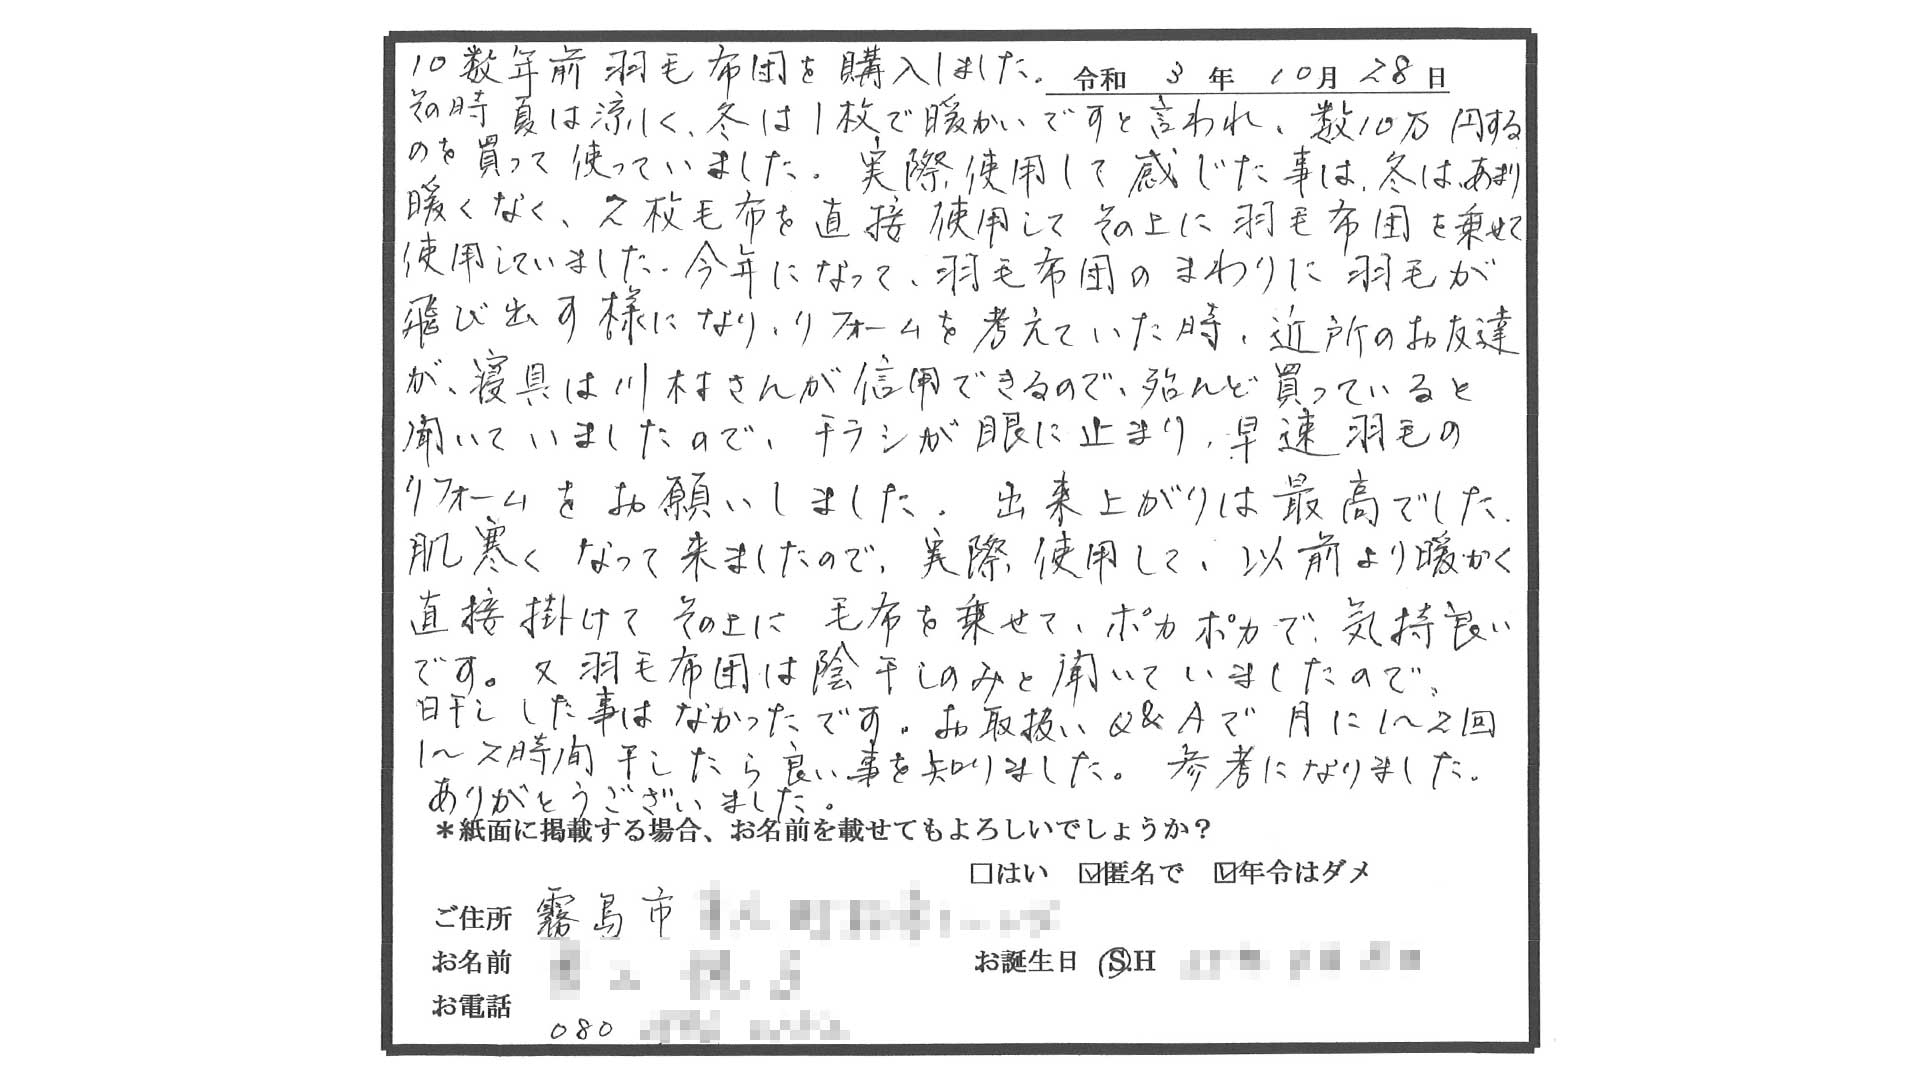 10数年前羽毛布団を購入しました。
令和 3 年 10月 28 日
その時夏は涼しく、冬は1枚で暖かいですと言われ、数10万円する
のを買って使っていました。実際使用して感じた事は、冬は、あまり
暖くなく、2枚毛布を直接使用してその上に羽毛布団を乗せて
使用していました。今年になって、羽毛布団のまわりに羽毛が
飛び出す様になり、リフォームを考えていた時、近所のお友達
が、寝具は川村さんが信用できるので、殆んど買っていると
聞いていましたので、チラシが眼に止まり、早速羽毛の
リフォームをお願いしました。出来上がりは最高でした。
肌寒くなって来ましたので、実際使用して、以前より暖かく
直接掛けてその上に毛布を乗せて、ポカポカで、気持良い
です。又羽毛布団は陰干しのみと聞いていましたので、
日干しした事はなかったです。お取扱いQ&Aで月に1〜2回
1〜2時間干したら良い事を知りました。参考になりました。
ありがとうございました。
＊紙面に掲載する場合、お名前を載せてもよろしいでしょうか？
□はい ☑匿名で ☑年令はダメ
ご住所 霧島市
お名前
お誕生日 S.H
お電話
080